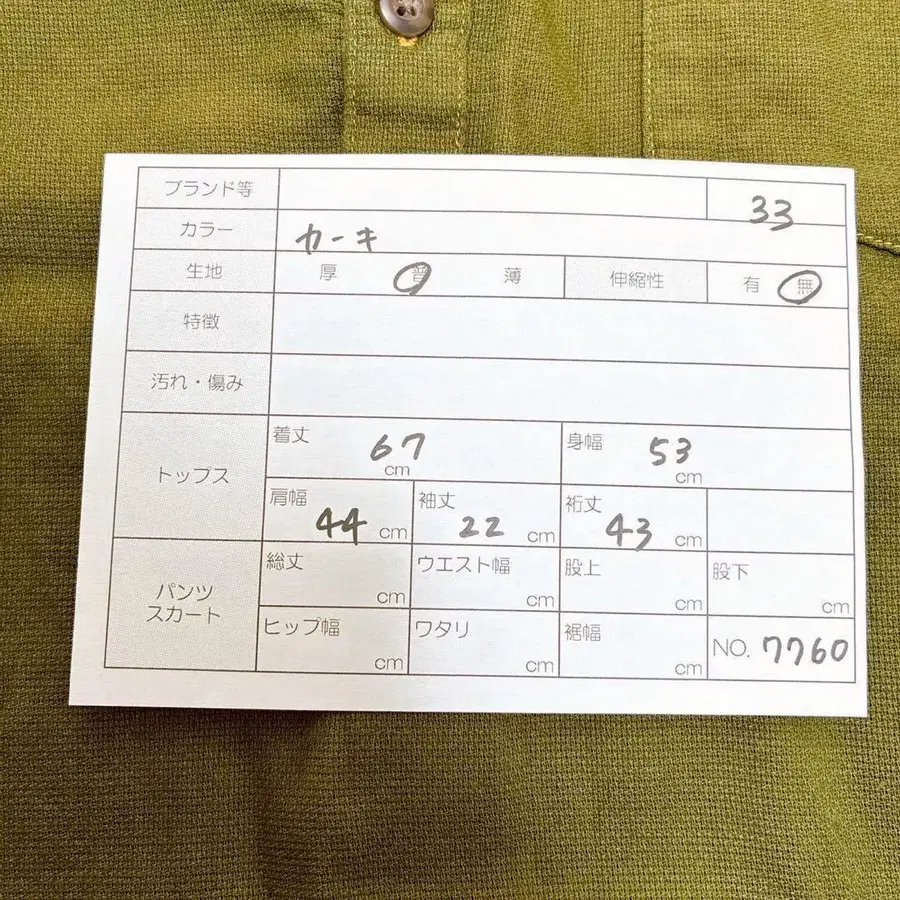 ブランド等 33
カラー カーキ
生地 厚 普 薄 伸縮性 有 無
特徴
汚れ・傷み
トップス 着丈 67 cm 身幅 53 cm
肩幅 44 cm 袖丈 22 cm 裄丈 43 cm
パンツ
スカート
総丈 cm ウエスト幅 cm 股上 cm 股下 cm
ヒップ幅 cm ワタリ cm 裾幅 cm NO. 7760